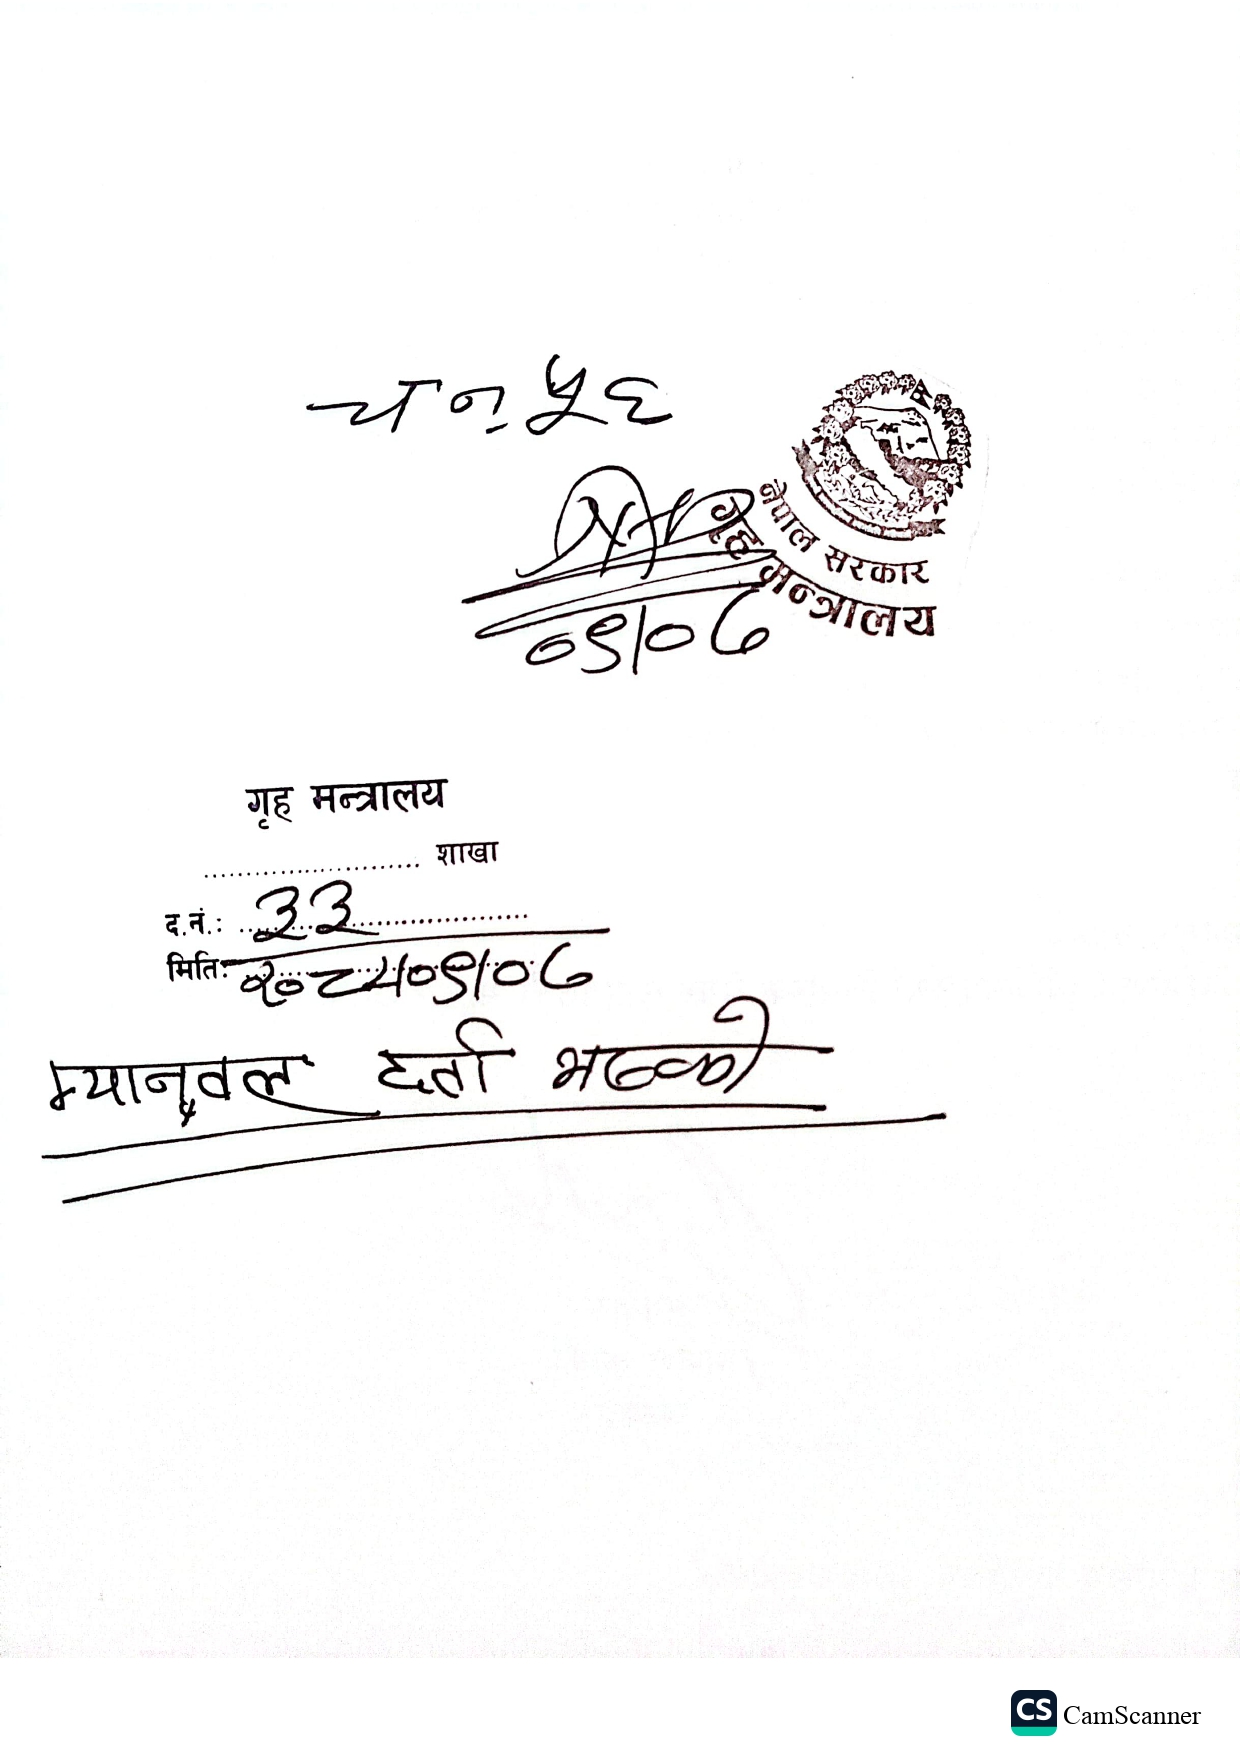 च.न. ५६
नेपाल सरकार
गृह मन्त्रालय
०९/०८
गृह मन्त्रालय
.............................. शाखा
द.नं.: ३३
मिति: २०८५/०९/०८
म्यानूवल दर्ता भएको
CS CamScanner